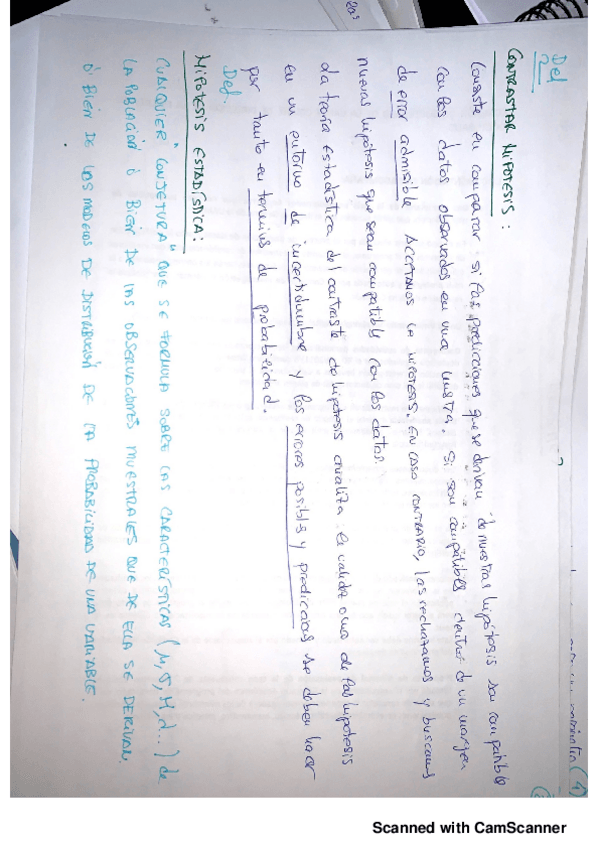 Def
CONTRASTAR HIPOTESIS:
Consiste en comparar si las predicciones que se derivan de nuestras hipótesis son compatible
con los datos observados en una muestra. Si son compatibles dentro de un margen
de error admisible ACEPTAMOS LA HIPÓTESIS. EN CASO CONTRARIO, las rechazamos y buscamos
nuevas hipótesis que sean compatible con los datos.
da teoría estadística del contraste de hipotesis analiza la validez o no de las hipotesis
en un entorno de incertidumbre y los errores posibles y predicciones se deben hacer
por tanto en terminos de probabilidad.
Def.
HIPOTESIS ESTADÍSTICA:
CUALQUIER "CONJETURA" QUE SE FORMULA SOBRE LAS CARACTERÍSTICAS (μ, σ, M, d...) de
LA POBLACIÓN Ó BIEN DE LAS OBSERVACIONES MUESTRALES QUE DE ELLA SE DERIVAN.
Ó BIEN DE LOS MODELOS DE DISTRIBUCIÓN DE LA PROBABILIDAD DE UNA VARIABLE.
Scanned with CamScanner